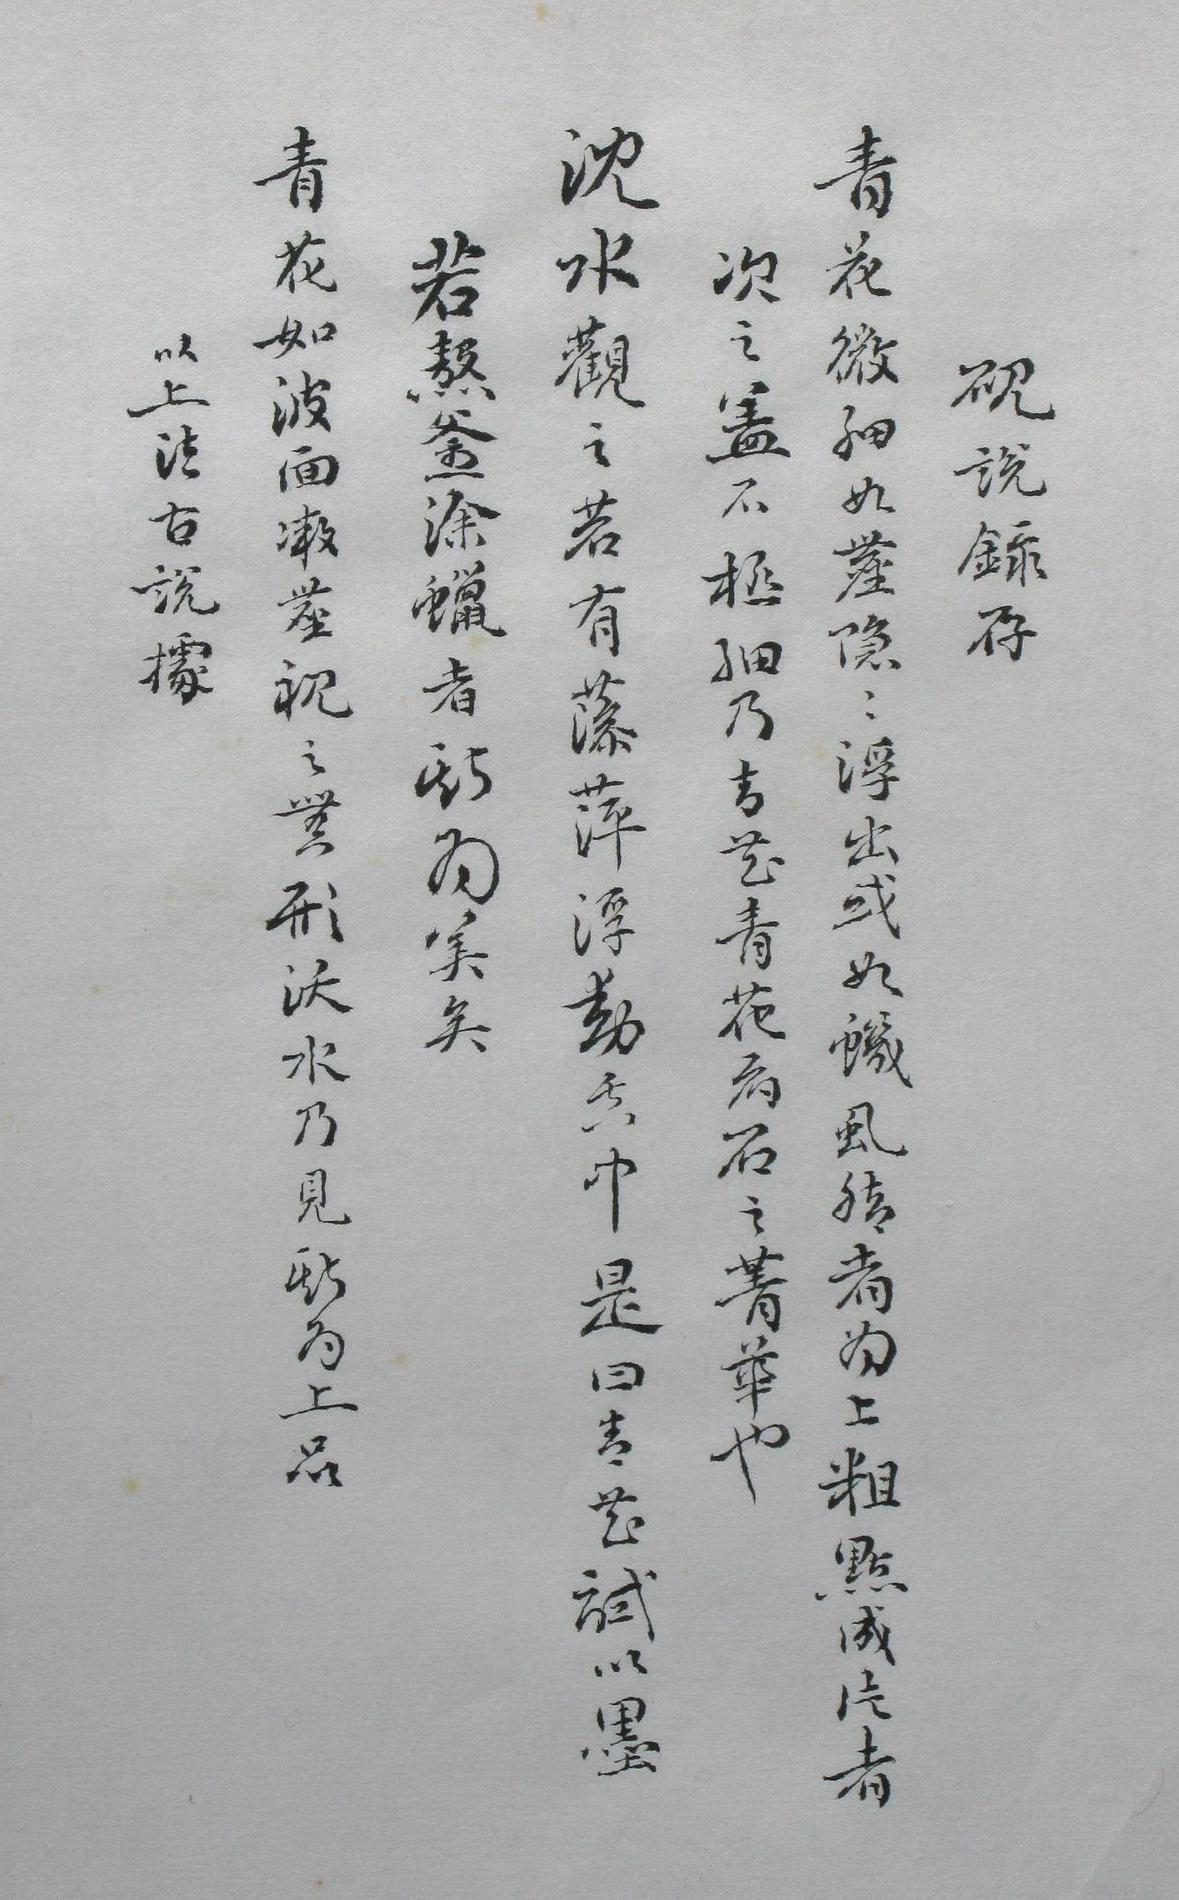 硯說錄存
青花微細如塵隱〻浮出或如蟣虱腳者為上粗點成片者
次之蓋不極細乃青花青花為石之菁華也
沈水觀之若有藻萍浮動其中是曰青花試以墨
若熬釜塗蠟者斯為美矣
青花如波面微塵視之無形沃水乃見斯為上品
以上法古說據